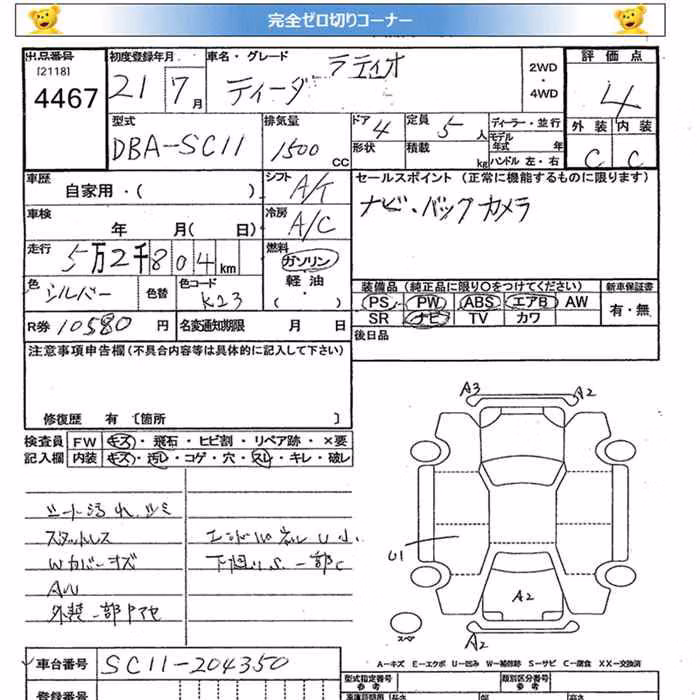 完全ゼロ切りコーナー
出品番号 [2118] 4467
初度登録年月 21 7月
車名・グレード ティーダ ラティオ
2WD・4WD
評価点 4
外装 内装
C C
型式 DBA-SC11
排気量 1500 CC
ドア 4 形状
定員 5人 積載 kg
ディーラー・並行
モデル年式 年
ハンドル 左・右
車歴 自家用・( )
シフト A/T
セールスポイント (正常に機能するものに限ります)
ナビ・バックカメラ
車検 年 月( 日)
冷房 A/C
走行 5万2千804km
燃料 ガソリン 軽油・( )
色 シルバー 色替 色コード K23
装備品 (純正品に限り○をつけてください) 新車保証書
PS PW ABS エアB AW 有・無
SR ナビ TV カワ
R券 10580円 名変通知期限 月 日
後日品
注意事項申告欄(不具合内容等は具体的に記入して下さい)
修復歴 有 〔箇所 〕
検査員 FW キズ・飛石・ヒビ割・リペア跡・×要
記入欄 内装 キズ・汚レ・コゲ・穴・スレ・キレ・破レ
シート汚れ シミ
スタットレス
Wカバーキズ
AW
外装一部ヤケセ
エンドパネルU小
下廻りS 一部C
A3 A2
U1
A2
A2
スペ
A-キズ E-エクボ U-凹み W-補修跡 S-サビ C-腐食 XX-交換済
車台番号 SC11-204350
登録番号
型式指定番号 参考
類別区分番号 参考